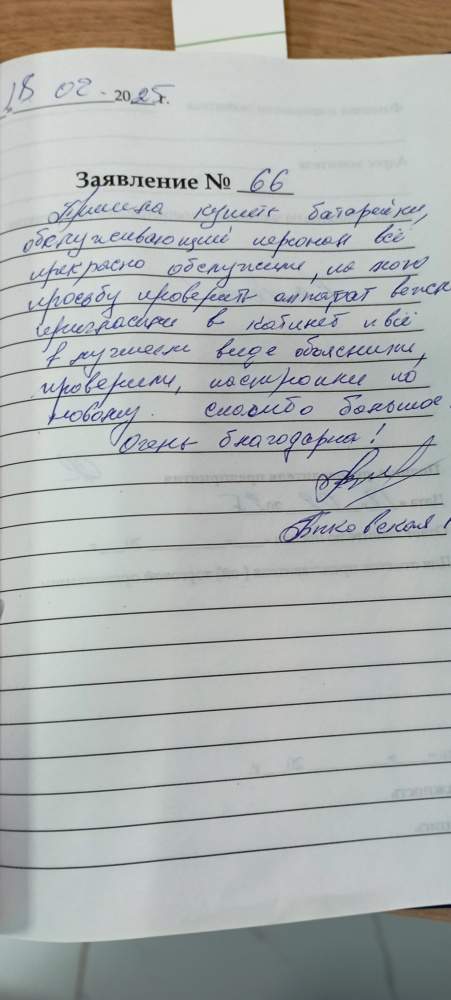 18 02 2025 г.
Заявление № 66
Пришла купить батарейки,
обслуживающий персонал всё
прекрасно обслужили, на мою
просьбу проверить аппарат
пригласили в кабинет и всё
в лучшем виде объяснили,
проверили, настроили по
новому. спасибо большое.
Очень благодарна!